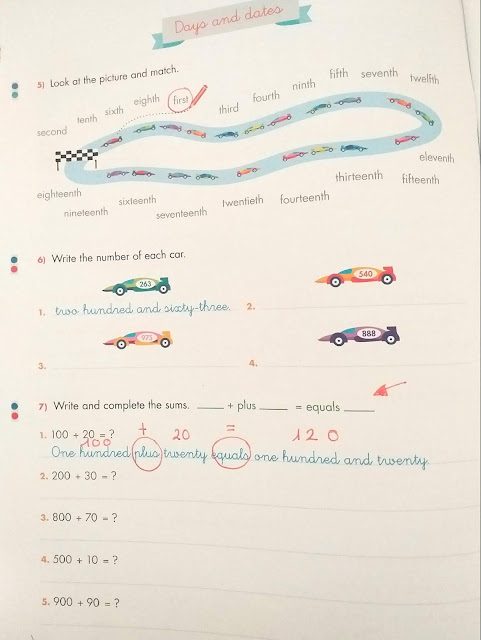 Days and dates
5) Look at the picture and match.
second tenth sixth eighth first third fourth ninth fifth seventh twelfth
eleventh
eighteenth nineteenth sixteenth seventeenth twentieth fourteenth thirteenth fifteenth
6) Write the number of each car.
263
540
1. two hundred and sixty-three. 2.
975
888
3. 4.
7) Write and complete the sums. ____ + plus ____ = equals ____
1. 100 + 20 = ?
100 + 20 = 120
One hundred plus twenty equals one hundred and twenty.
2. 200 + 30 = ?
3. 800 + 70 = ?
4. 500 + 10 = ?
5. 900 + 90 = ?